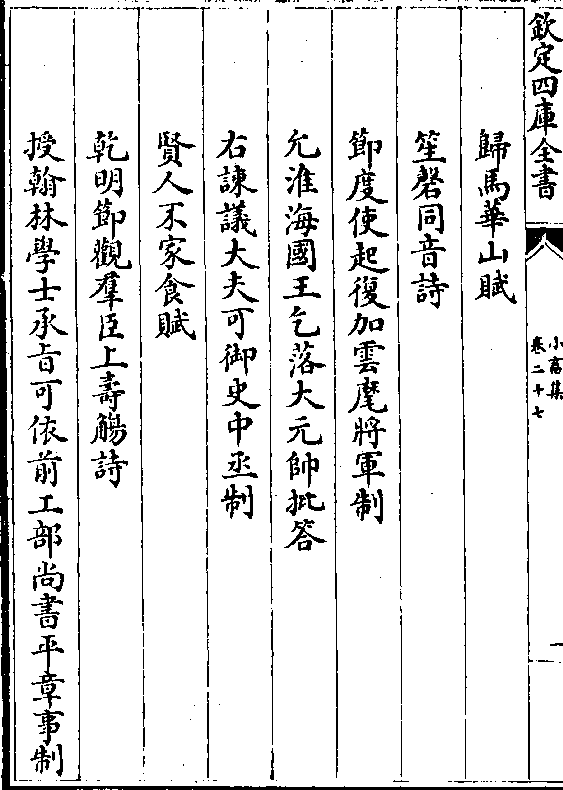 欽定四庫全書
小畜集
卷二十七
一
歸馬華山賦
笙磬同音詩
節度使起復加雲麾將軍制
允淮海國王乞落大元帥批答
右諫議大夫可御史中丞制
賢人不家食賦
乾明節觀羣臣上壽觴詩
授翰林學士承旨可依前工部尚書平章事制